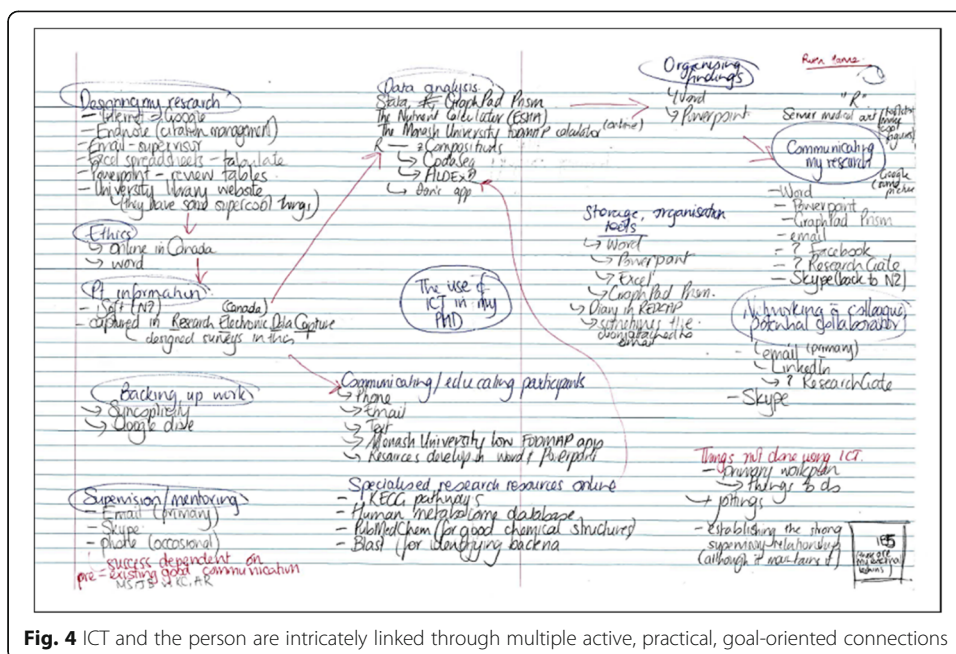 Designing my research
- Internet → Google
- Endnote (citation management)
- Email - supervisor
- Excel spreadsheets - tabulate
- Powerpoint - review tables
- University library website
(they have some supercool things)
Ethics
↳ online in Canada
↳ word
Pt information
(NZ) (Canada)
- captured in Research Electronic Data Capture
designed surveys in this
Backing up work
↳ Syncplicity
↳ Google drive
Supervision/mentoring
- Email (primary)
- Skype
- phone (occasional)
success dependent on
pre-existing good communication
Data analysis
Stata, GraphPad Prism
The Nutrient Calculator (ESHA)
The Monash University FODMAP calculator (online)
R → Compositions
↳ CodaSeq
↳ ALDEx2
↳ app
The use of
ICT in my
PHD
Communicating/educating participants
↳ Phone
↳ Email
↳ Text
↳ Monash University low FODMAP app
↳ Resources develop in word & Powerpoint
Specialised research resources online
- KEGG pathways
- Human metabolome database
- PubMedChem (for good chemical structures)
- Blast (for identifying bacteria)
Organising
findings
↳ Word
↳ Powerpoint
Storage, organisation
tools
↳ Word
↳ Powerpoint
↳ Excel
↳ GraphPad Prism.
- Diary in
- sometimes
email
"R"
medical art
Communicating
my research
Google
- Word
- Powerpoint
- GraphPad Prism
- email
- ? Facebook
- ? ResearchGate
- Skype (back to NZ)
Networking colleagues
potential collaborators
- email (primary)
- LinkedIn
↳ ? ResearchGate
- Skype
Things not done using ICT.
- primary workplan
→ things to do
→ jottings
- establishing the strong
supervisory relationship
(although it maintains it)
Fig. 4 ICT and the person are intricately linked through multiple active, practical, goal-oriented connections